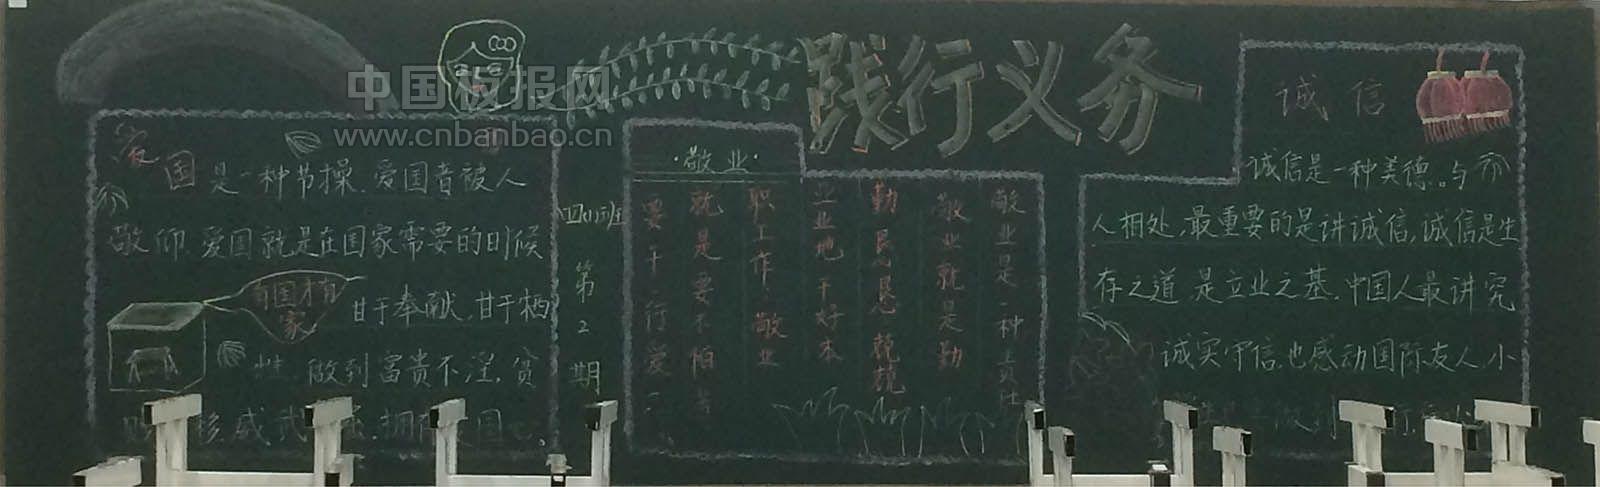 中国板报网
www.cnbanbao.cn
践行义务
爱国是一种节操.爱国者被人
敬仰.爱国就是在国家需要的时候
有国才有
家
甘于奉献,甘于牺
牲.做到富贵不淫,贫
移.威武
四(1)班
第2期
·敬业·
敬业是一种责任
敬业就是勤
勤恳恳兢兢
业业地干好本
职工作.敬业
就是要不怕
要干一行爱一
诚信
诚信是一种美德。与
人相处,最重要的是讲诚信,诚信是生
存之道,是立业之基.中国人最讲究
诚实守信.也感动国际友人.小